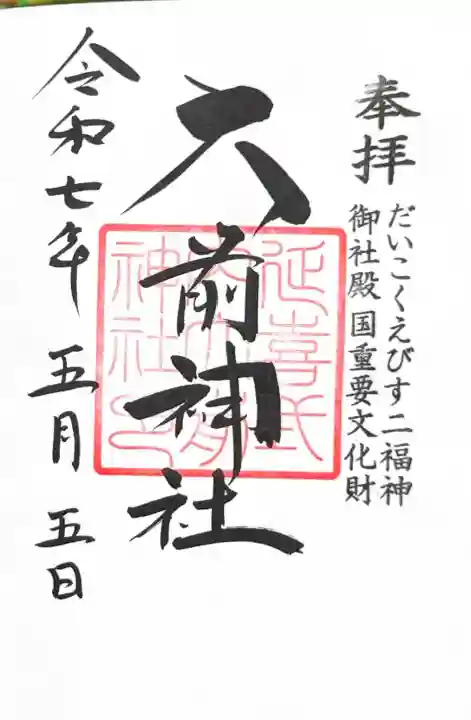 奉拝
だいこくえびす二福神
御社殿国重要文化財
大前神社
延喜式
内大前
神社
令和七年 五月 五日